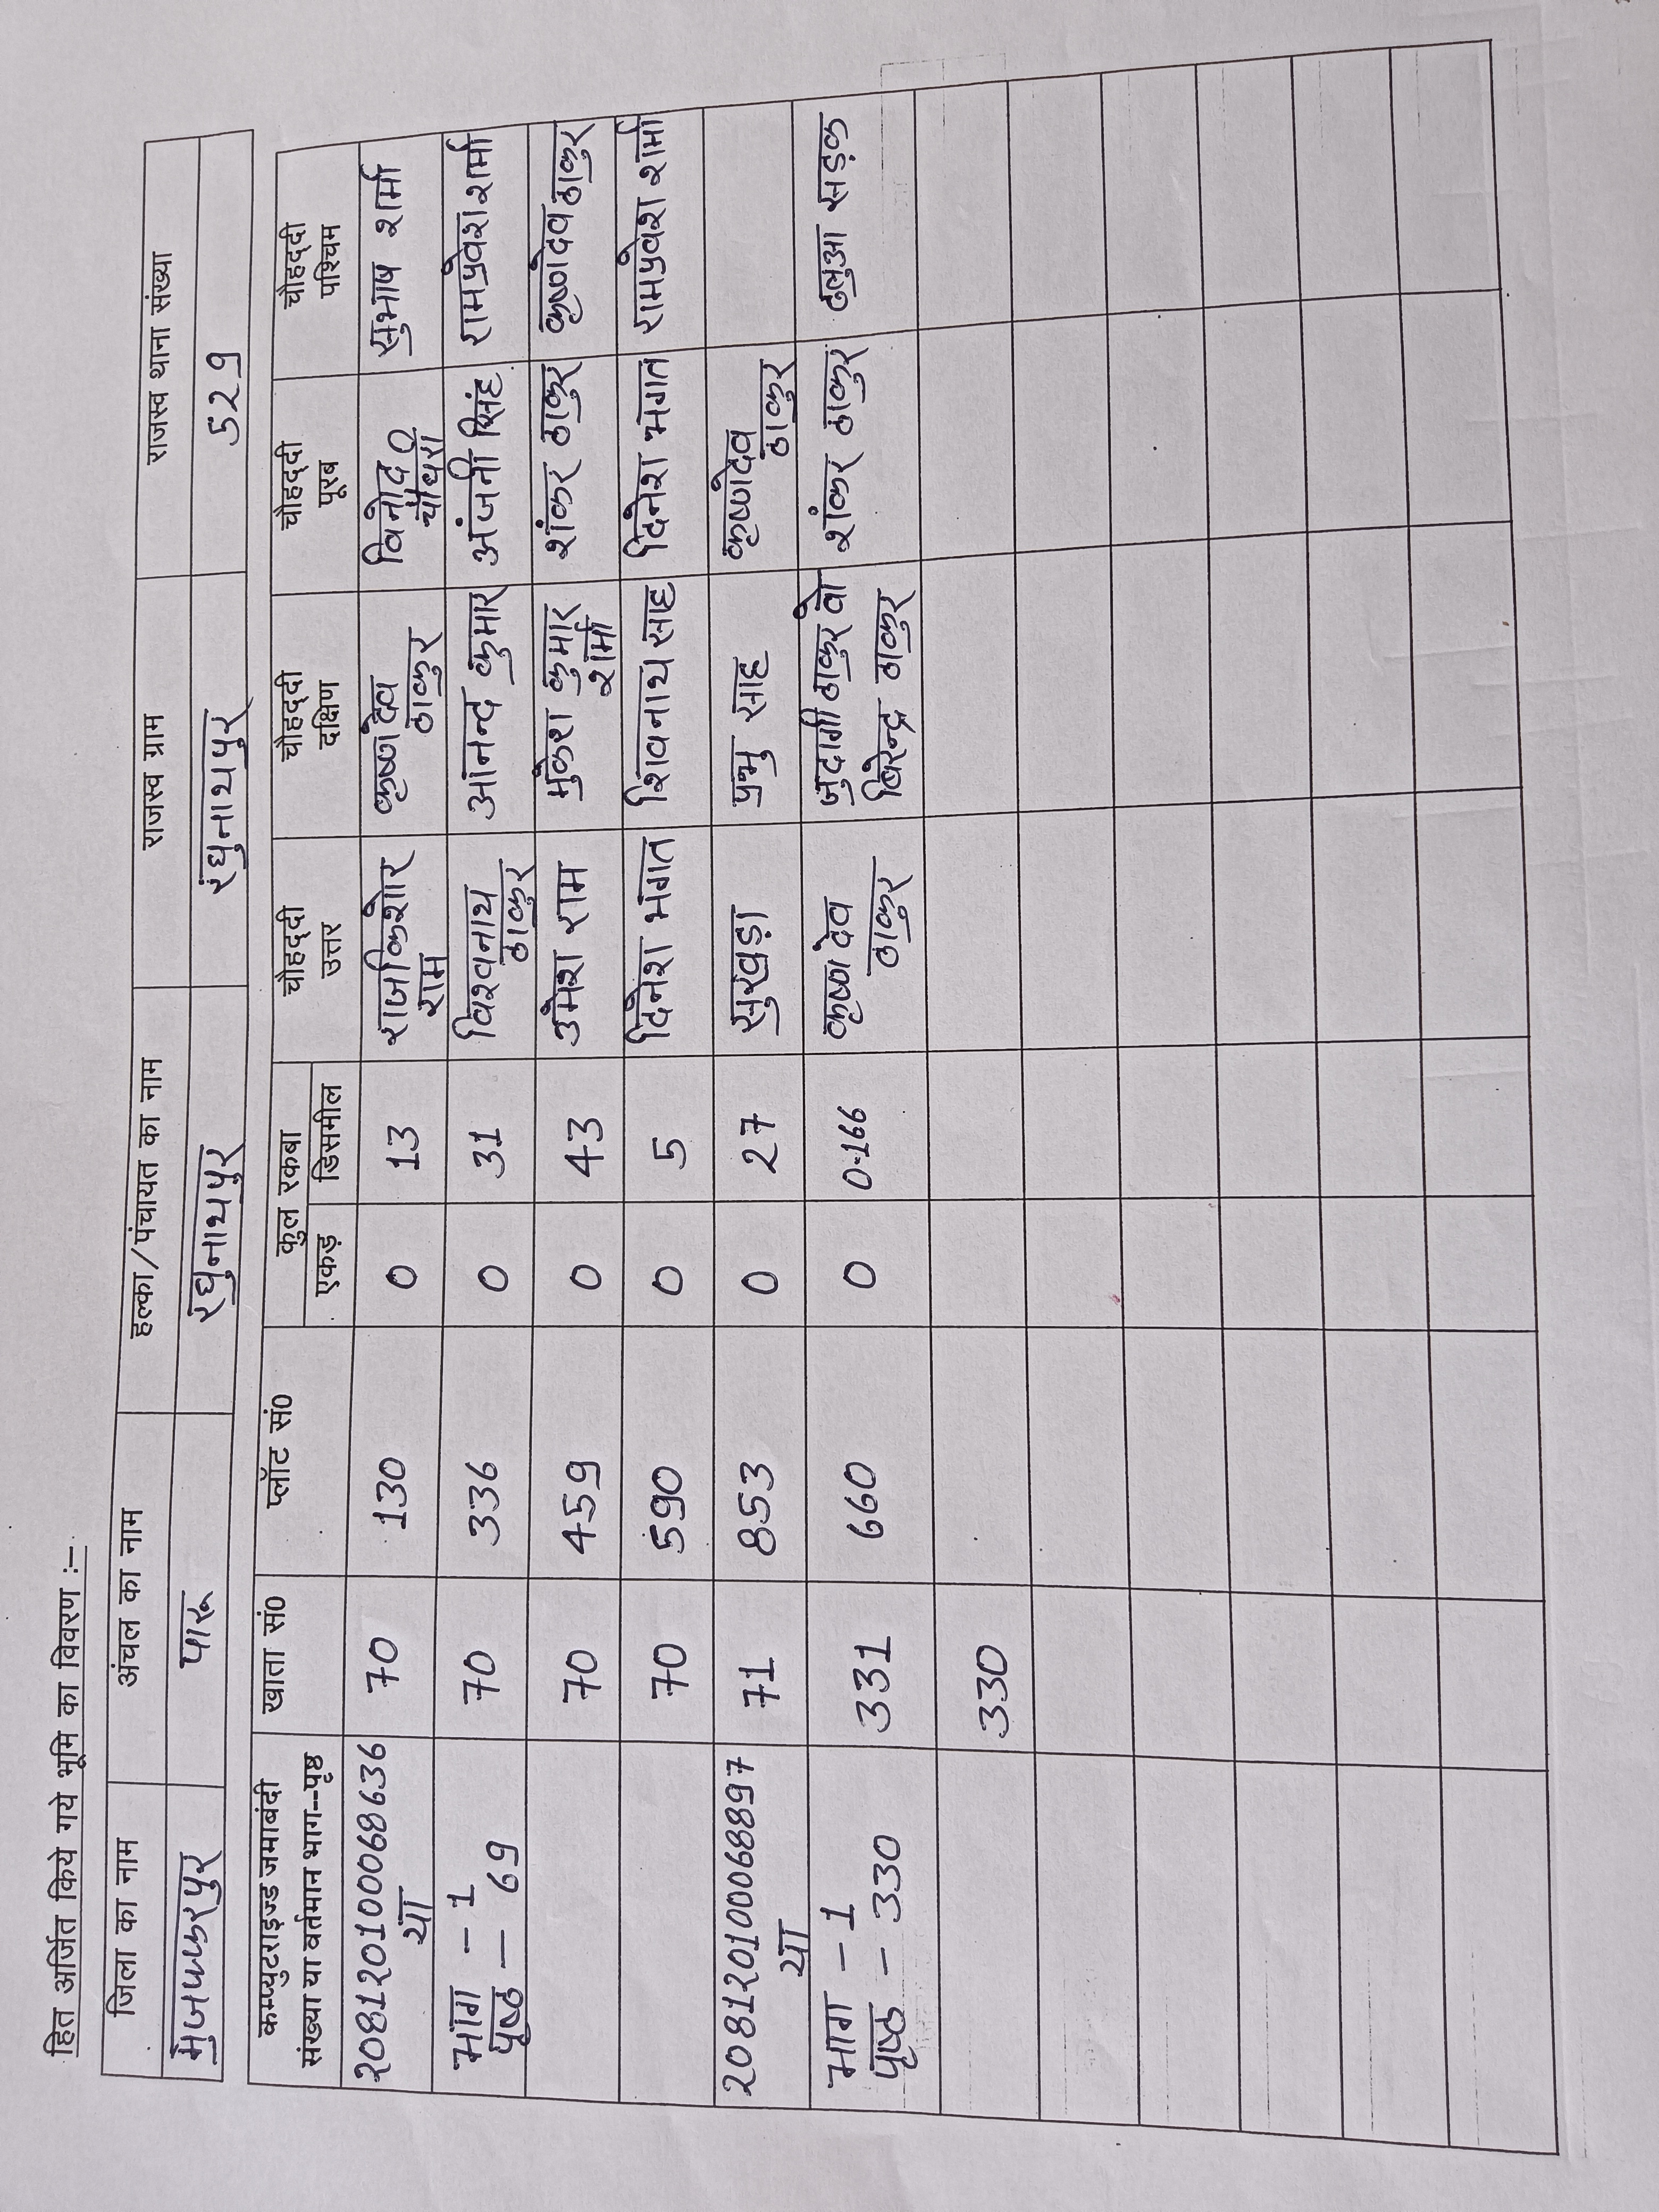 हित अर्जित किये गये भूमि का विवरण :–
जिला का नाम अंचल का नाम हल्का/पंचायत का नाम राजस्व ग्राम राजस्व थाना संख्या
मुजफ्फरपुर पारू रघुनाथपुर रघुनाथपुर 529
कम्प्युटराइज्ड जमाबंदी
संख्या या वर्तमान भाग--पृष्ठ
खाता सं0
प्लॉट सं0
कुल रकबा
एकड़ डिसमील
चौहद्दी
उत्तर
चौहद्दी
दक्षिण
चौहद्दी
पूरब
चौहद्दी
पश्चिम
208120100068636
या
70 130 0 13
राजकिशोर
राम
कृष्णदेव
ठाकुर
विनोद
चौधरी
सुभाष शर्मा
भाग – 1
पृष्ठ – 69
70 336 0 31
विश्वनाथ
ठाकुर
आनन्द कुमार
अंजनी सिंह
रामप्रवेश शर्मा
70 459 0 43
उमेश राम
मुकेश कुमार
शर्मा
शंकर ठाकुर
कृष्णदेव ठाकुर
70 590 0 5
दिनेश भगत
शिवनाथ साह
दिनेश भगत
रामप्रवेश शर्मा
208120100068897
या
71 853 0 27
सुखड़ा
प्रभु साह
कृष्णदेव
ठाकुर
भाग – 1
पृष्ठ – 330
331 660 0 0.166
कृष्णदेव
ठाकुर
जुदागी ठाकुर वो
बिरेन्द्र ठाकुर
शंकर ठाकुर
ढलुआ सड़क
330